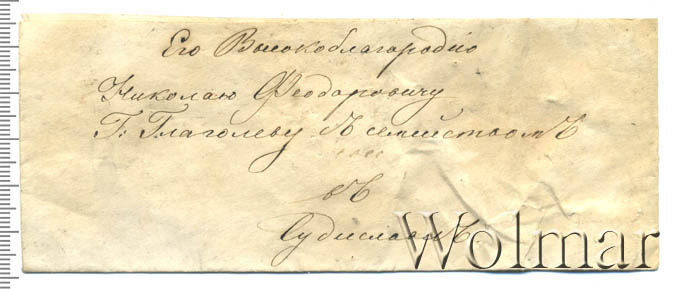 Его Высокоблагородію
Николаю Феодоровичу
Г: Глаголеву съ семействомъ
въ
Судиславлъ
Wolmar